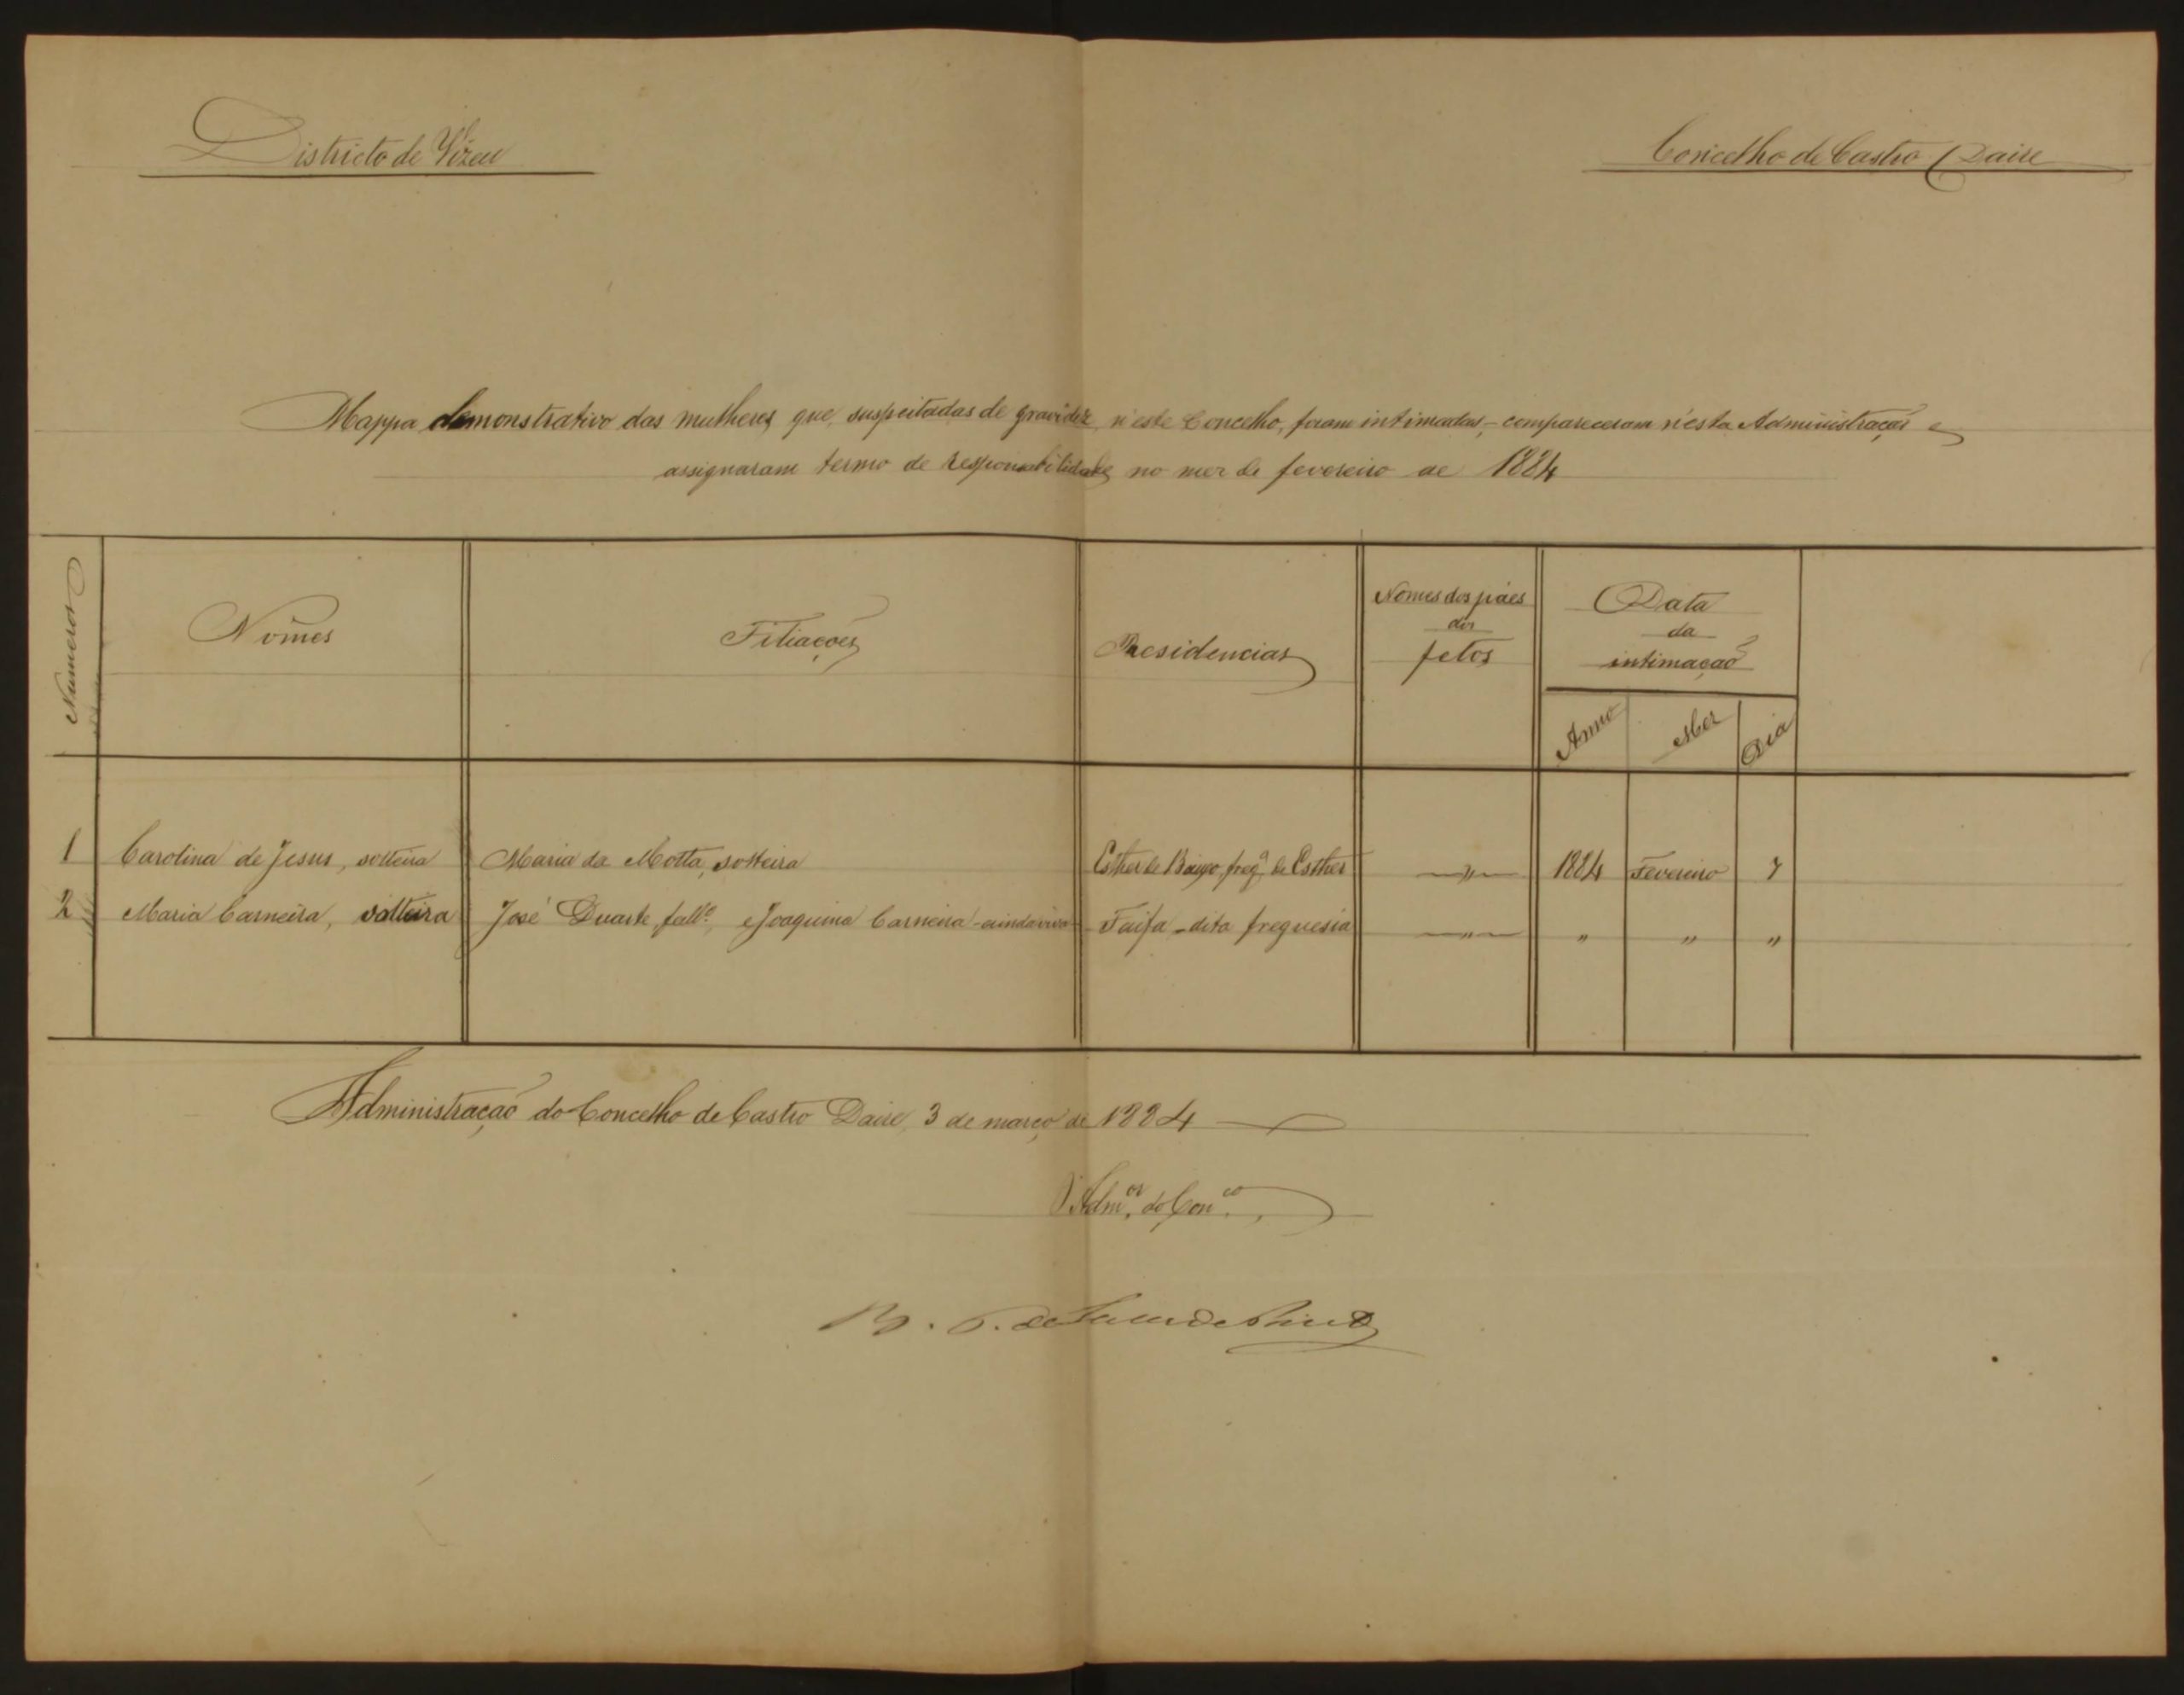 Districto de Vizeu
Concelho de Castro Daire
Mappa demonstrativo das mulheres que, suspeitadas de gravidez, n'este Concelho, foram intimadas, - compareceram n'esta Administração e
assignaram termo de responsabilidade no mez de fevereiro de 1884
Numeros
Nomes
Filiações
Residencias
Nomes dos páes
dos
fetos
Data
da
intimação
Anno
Mez
Dia
1 Carolina de Jesus, solteira Maria da Motta, solteira Esther de Baixo, freg.ª de Esther —"— 1884 Fevereiro 7
2 Maria Carneira, solteira José Duarte, fall.º, e Joaquina Carneira - ainda viva Faifa - dita freguesia —"— " " "
Administração do Concelho de Castro Daire, 3 de março de 1884
O Adm.or do Con.co,